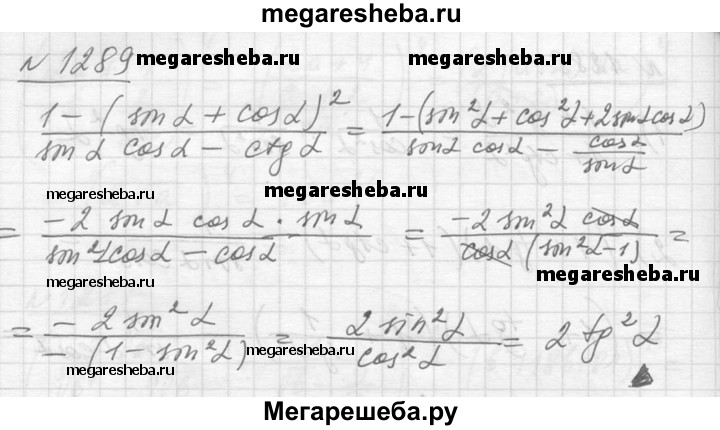 megaresheba.ru
N 1289 megaresheba.ru megaresheba.ru
(1 - (sin α + cos α)^2) / (sin α cos α - ctg α) = (1 - (sin^2 α + cos^2 α + 2 sin α cos α)) / (sin α cos α - cos α / sin α)
megaresheba.ru megaresheba.ru
= (-2 sin α cos α · sin α) / (sin^2 α cos α - cos α) = (-2 sin^2 α cos α) / (cos α (sin^2 α - 1)) =
megaresheba.ru
= (-2 sin^2 α) / (-(1 - sin^2 α)) = (2 sin^2 α) / (cos^2 α) = 2 tg^2 α
megaresheba.ru megaresheba.ru
Мегарешеба.ру